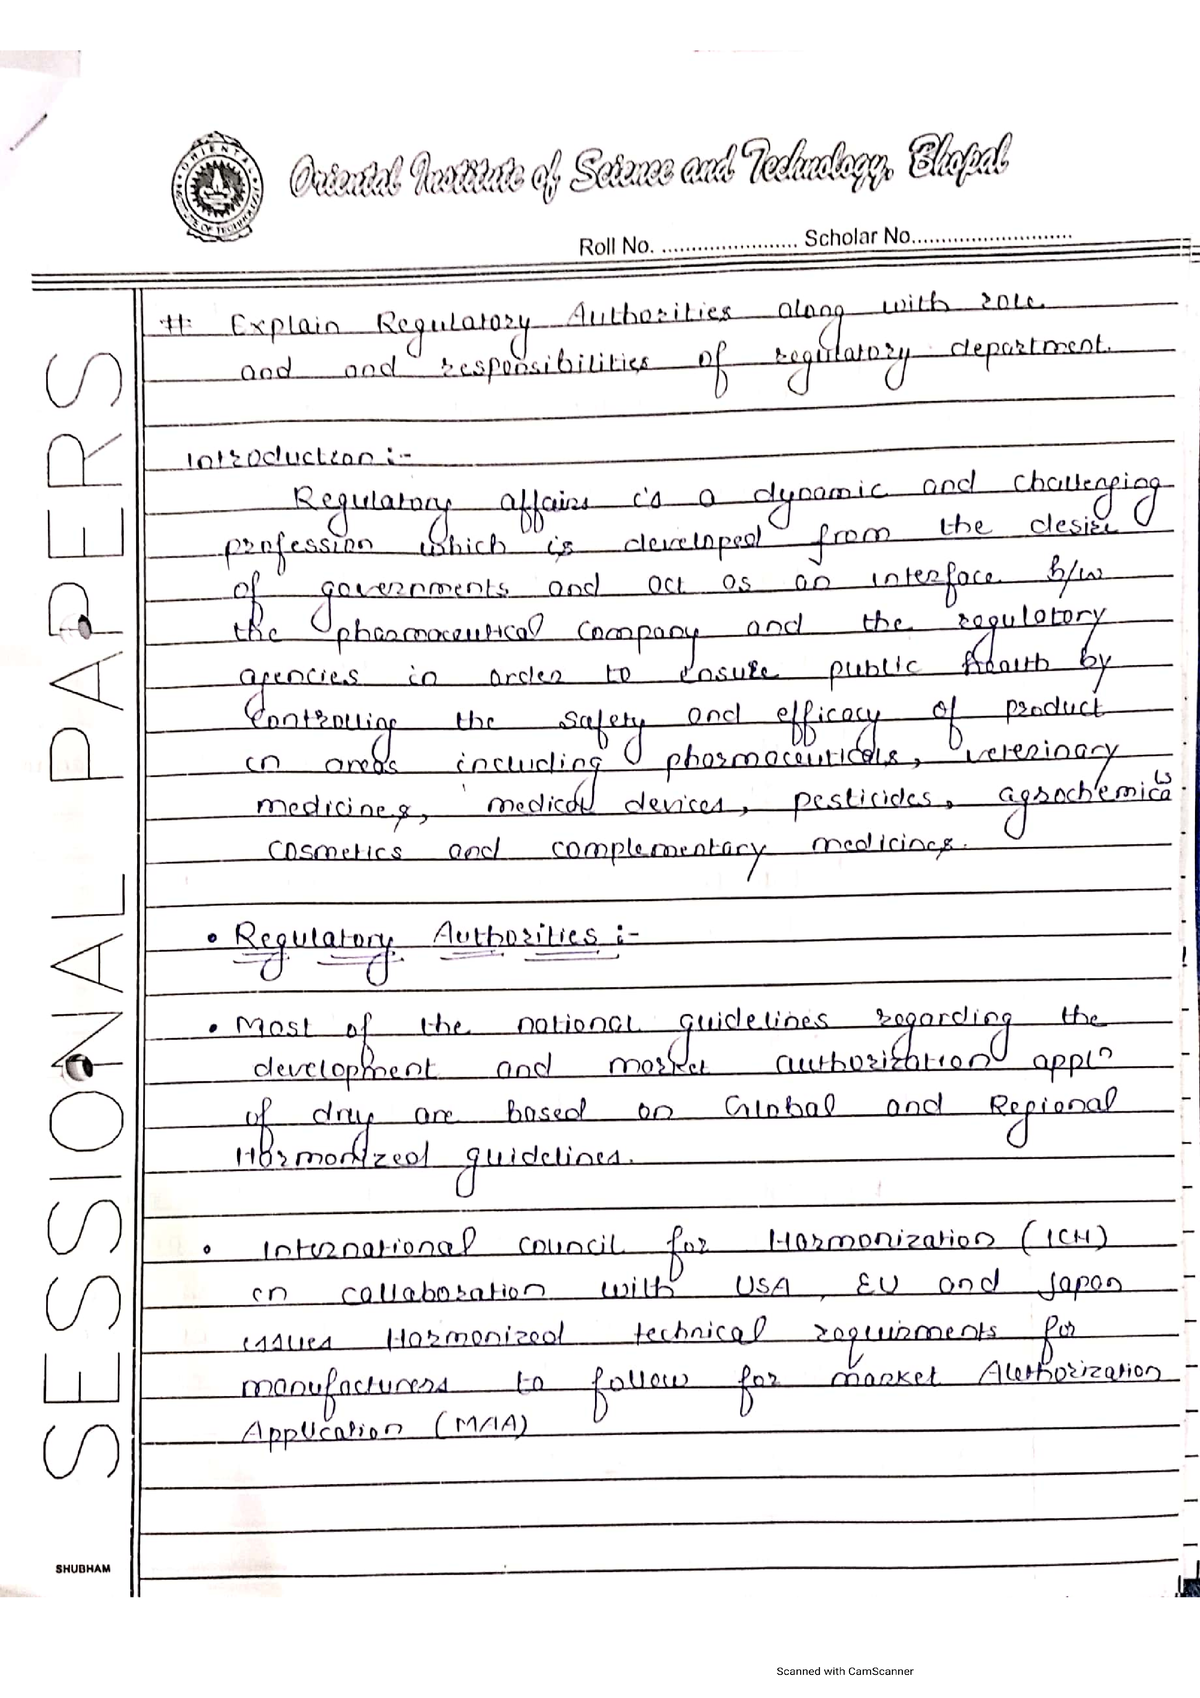 ORIENTAL
OF TECHNOLOGY
Oriental Institute of Science and Technology, Bhopal
Roll No. ....................... Scholar No...........................
#: Explain Regulatory Authorities along with role
and and responsibilities of regulatory department.
Introduction :-
Regulatory affairs is a dynamic and challenging
profession which is developed from the desire
of governments and act as an interface b/w
the pharmaceutical company and the regulatory
agencies in order to ensure public health by
controlling the safety and efficacy of product
in areas including pharmaceuticals, veterinary
medicines, medical devices, pesticides, agrochemicals
cosmetics and complementary medicines.
• Regulatory Authorities :-
• Most of the national guidelines regarding the
development and market authorization appln
of drug are based on Global and Regional
Harmonized guidelines.
• International council for Harmonization (ICH)
in collaboration with USA, EU and Japan
issues Harmonized technical requirments for
manufacturers to follow for market Authorization
Application (MAA)
SESSIONAL PAPERS
SHUBHAM
Scanned with CamScanner